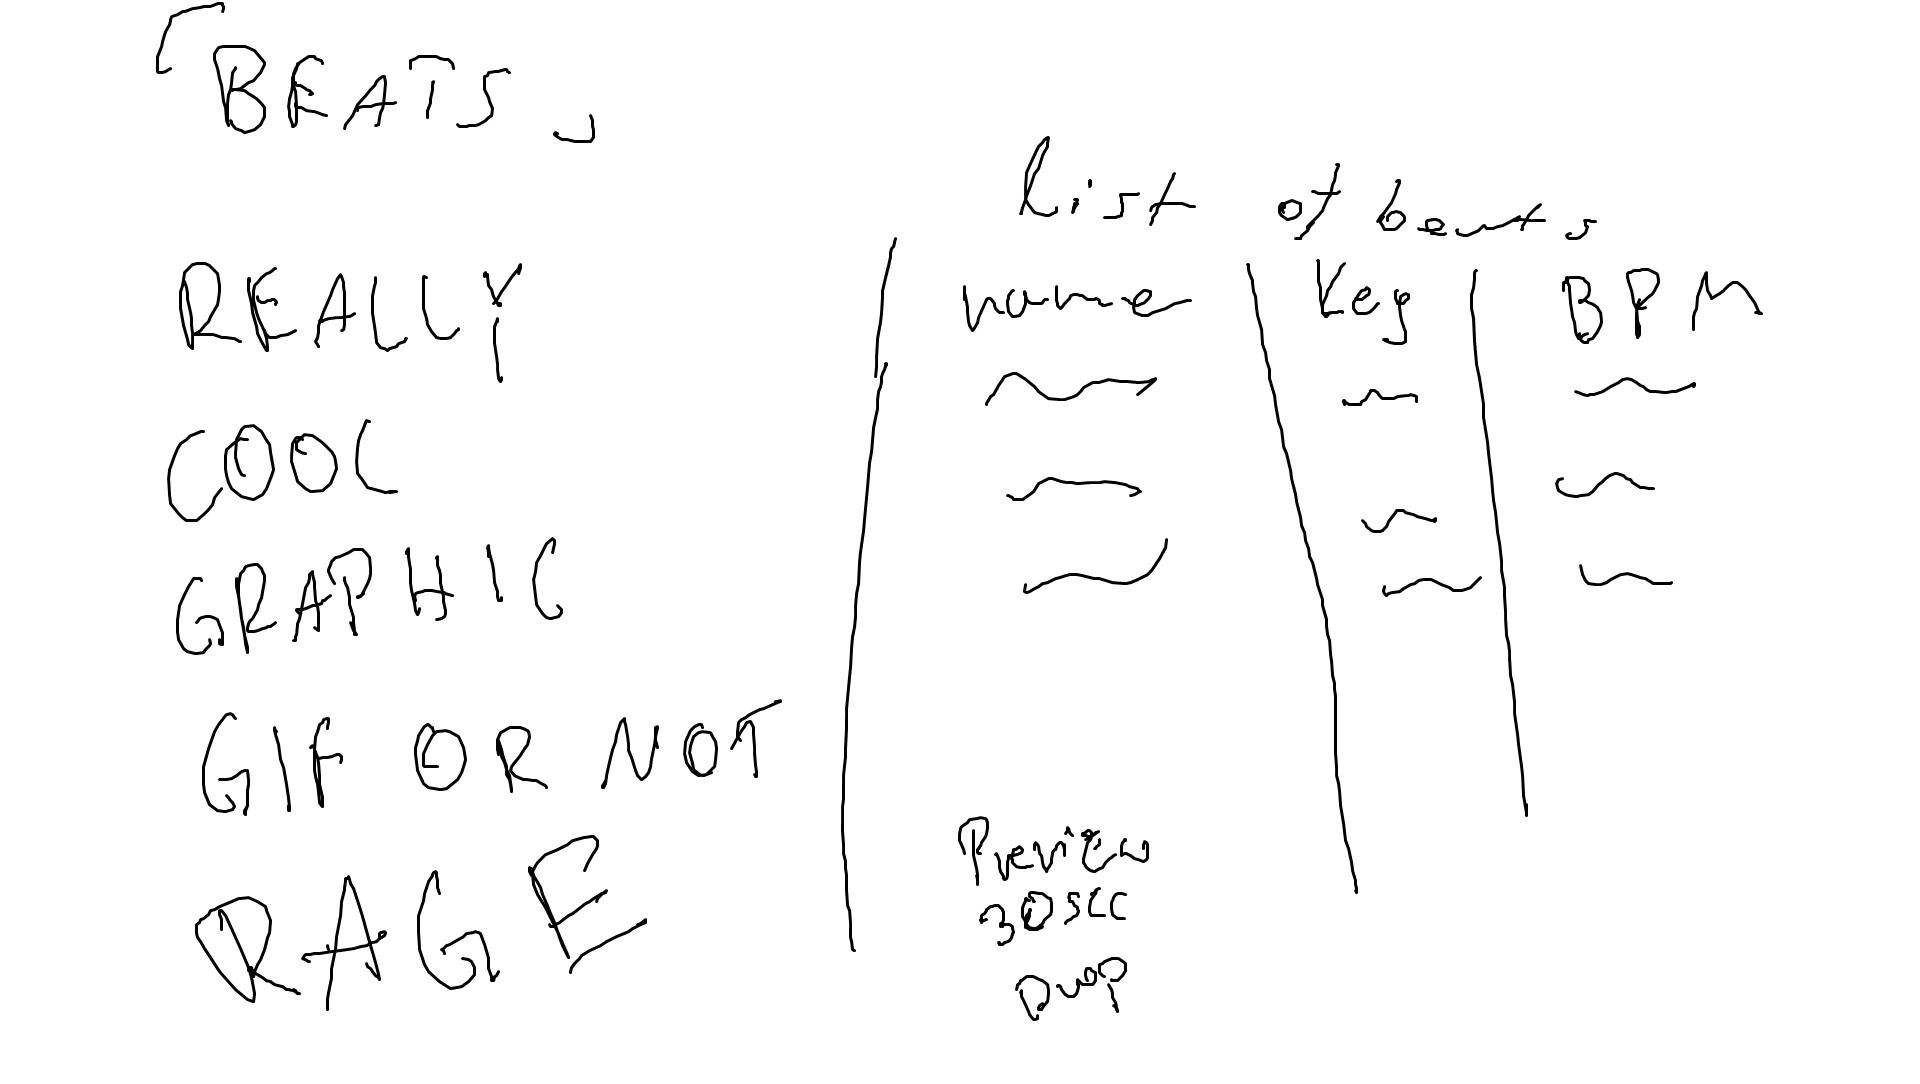 「BEATS」
REALLY
COOL
GRAPHIC
GIF OR NOT
RAGE
list of beats
name Key BPM
Preview
30sec
Drop